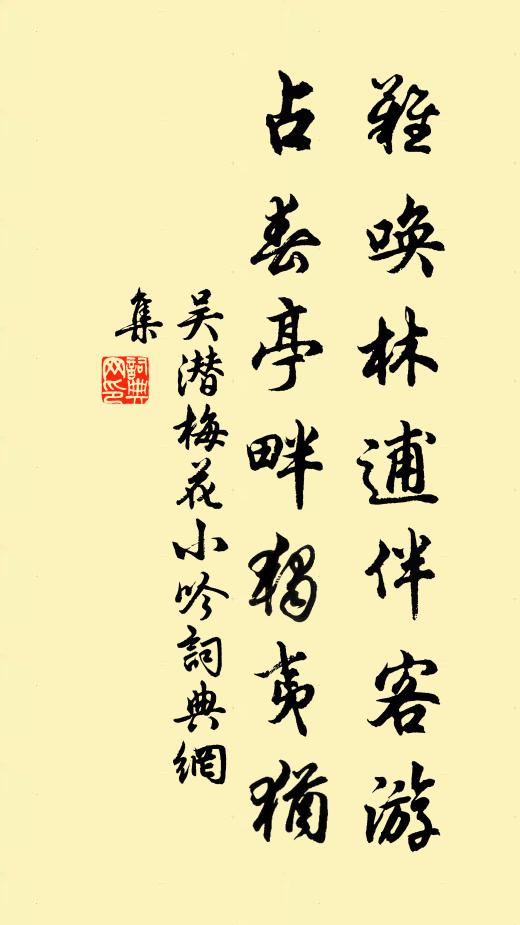 難喚林逋伴客游
占春亭畔獨夷猶
吳潛梅花小吟詞典網
集
詞典網印